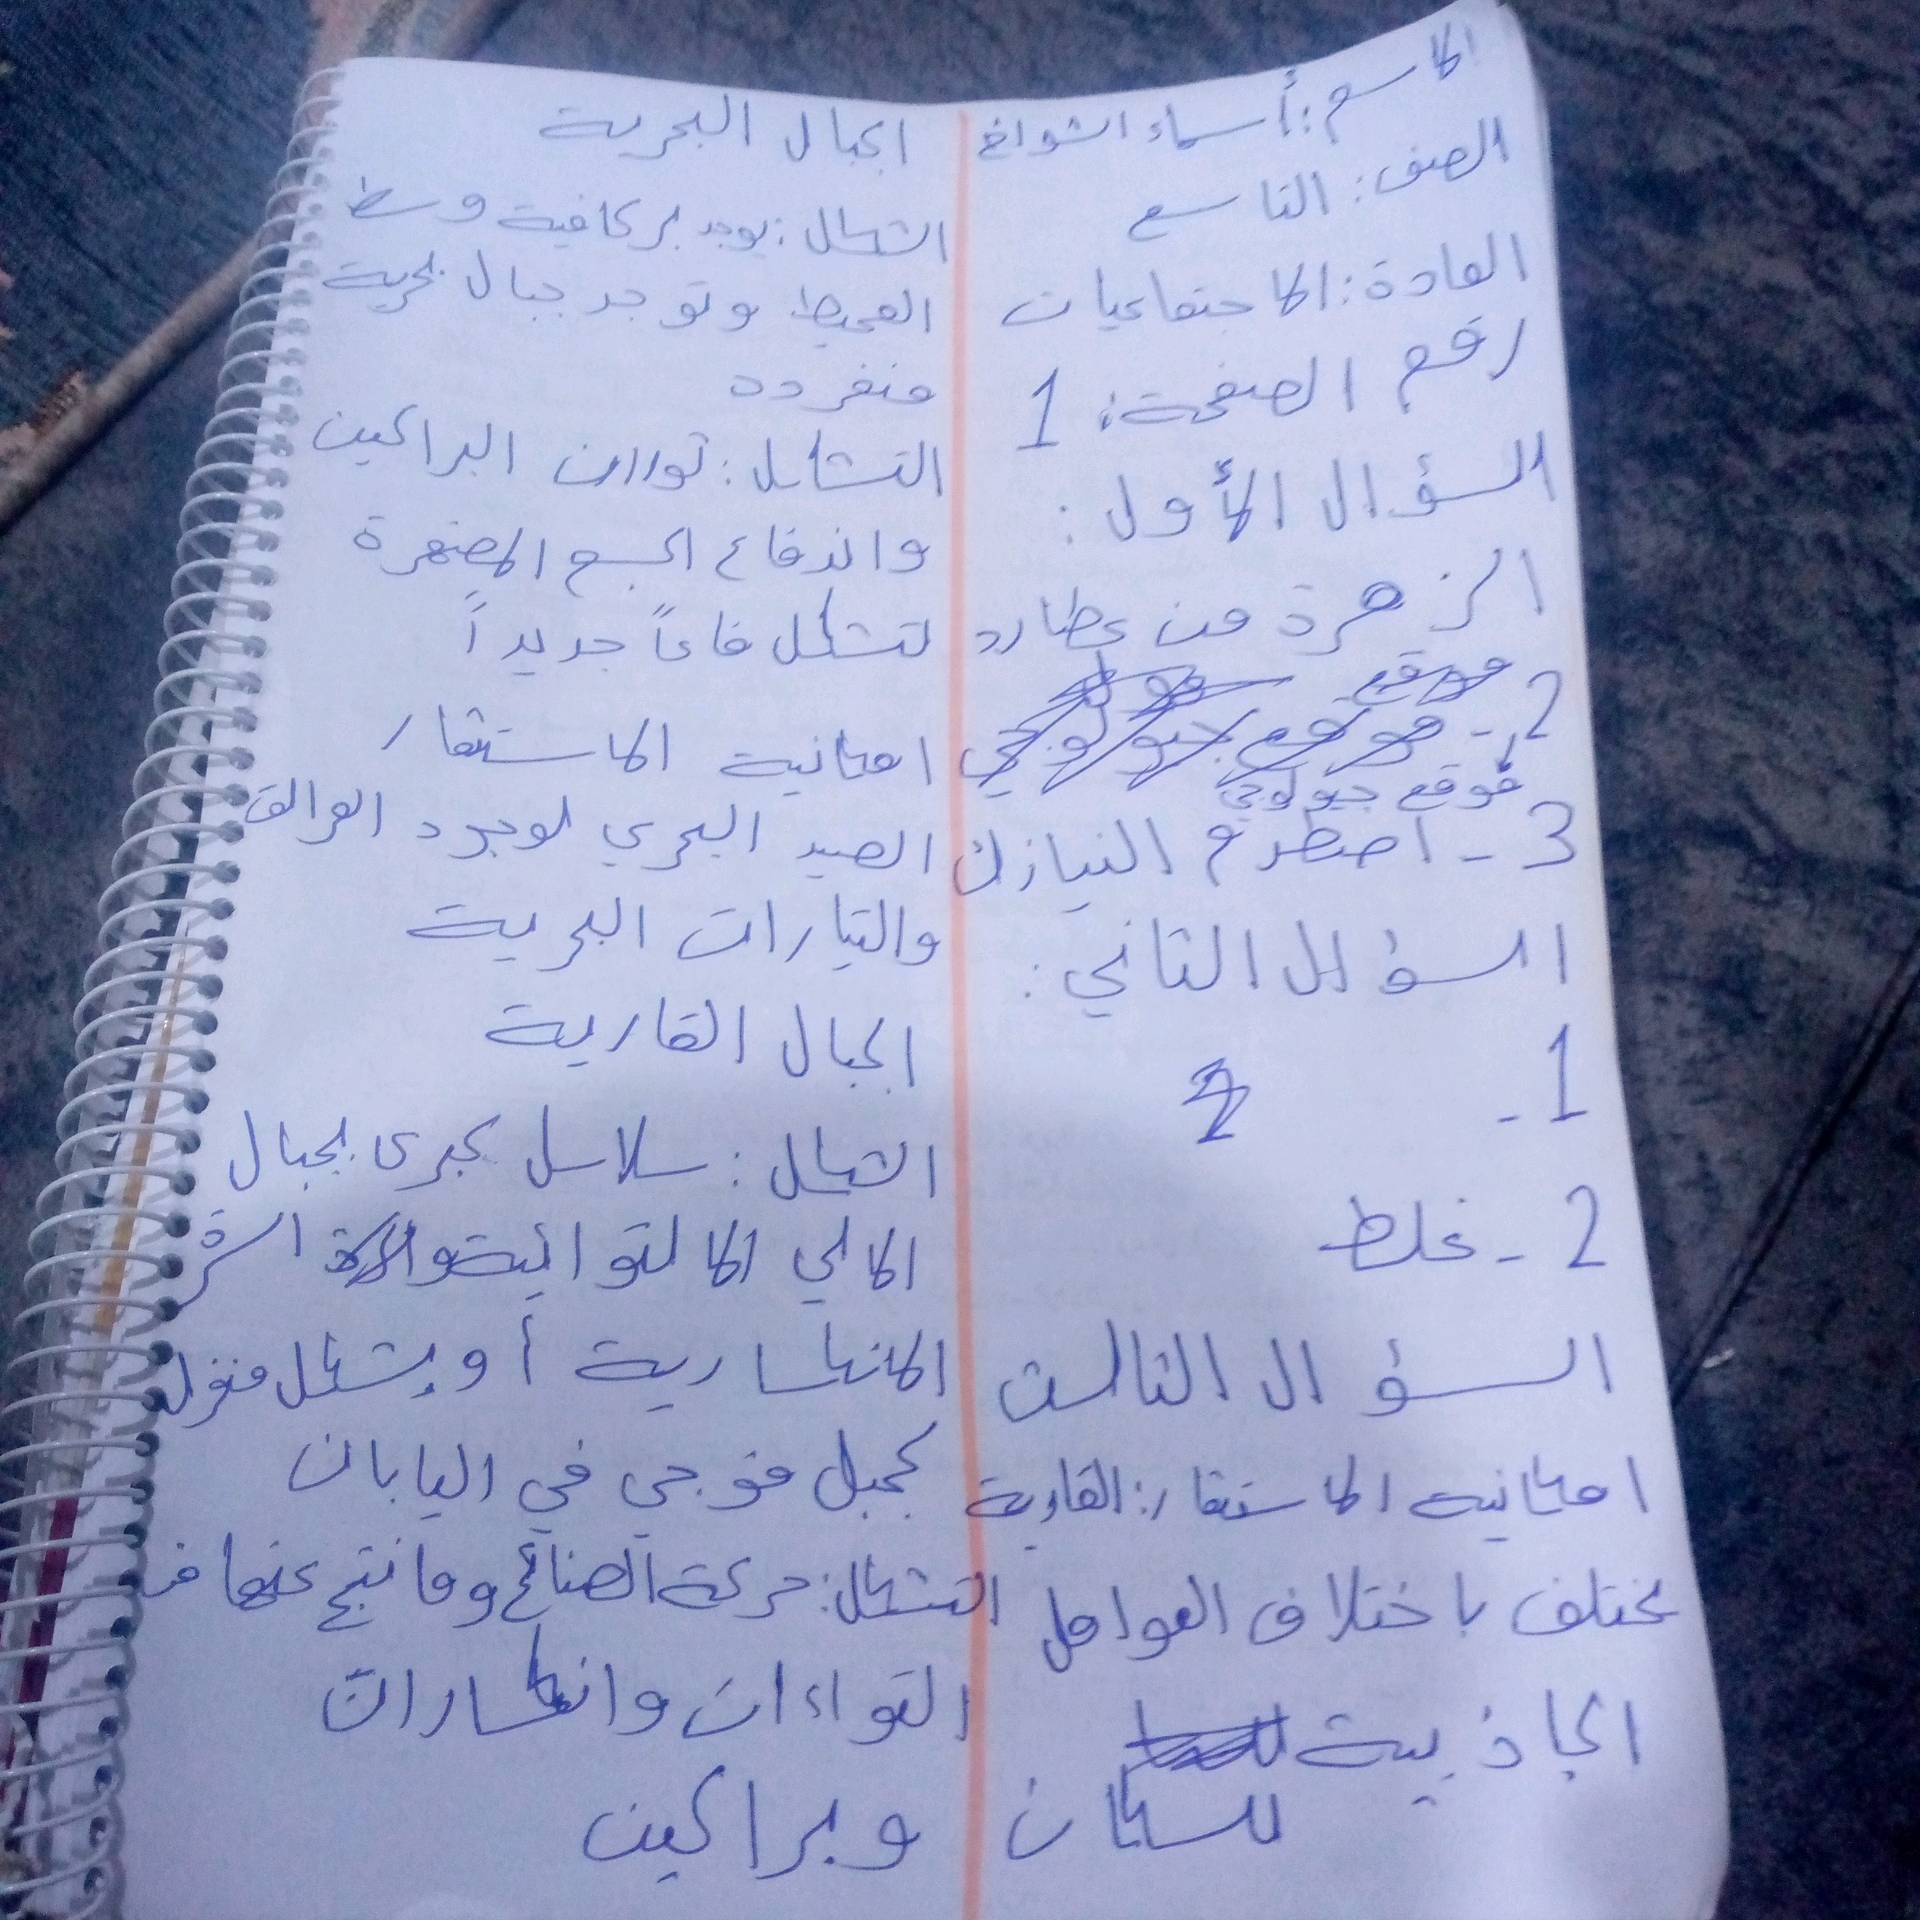 الاسم: أسماء الشواخ
الصف: التاسع
المادة: الاجتماعيات
رقم الصفحة: 1
السؤال الأول:
الزهرة من عطارد
2 - موقع جيولوجي
3 - اصطدم النيازك
السؤال الثاني:
1 - 2
2 - غلط
السؤال الثالث
امكانية الاستقار: القارية
يختلف باختلاف العوامل
الجاذبية
للسكان
الجبال البحرية
الشكل: يوجد بركافية وسط
المحيط وتوجد جبال بحرية
منفردة
التشكل: ثوران البراكين
واندفاع المصهرة
لتشكل قاعاً جديداً
امكانية الاستثمار
الصيد البحري لوجود العوالق
والتيارات البحرية
الجبال القارية
الشكل: سلاسل كبرى لجبال
الالتوائية
الانكسارية أو بشكل منزل
كجبل فوجي في اليابان
التشكل: حركة الصفائح وما نتج عنها من
التواءات وانكسارات
وبراكين